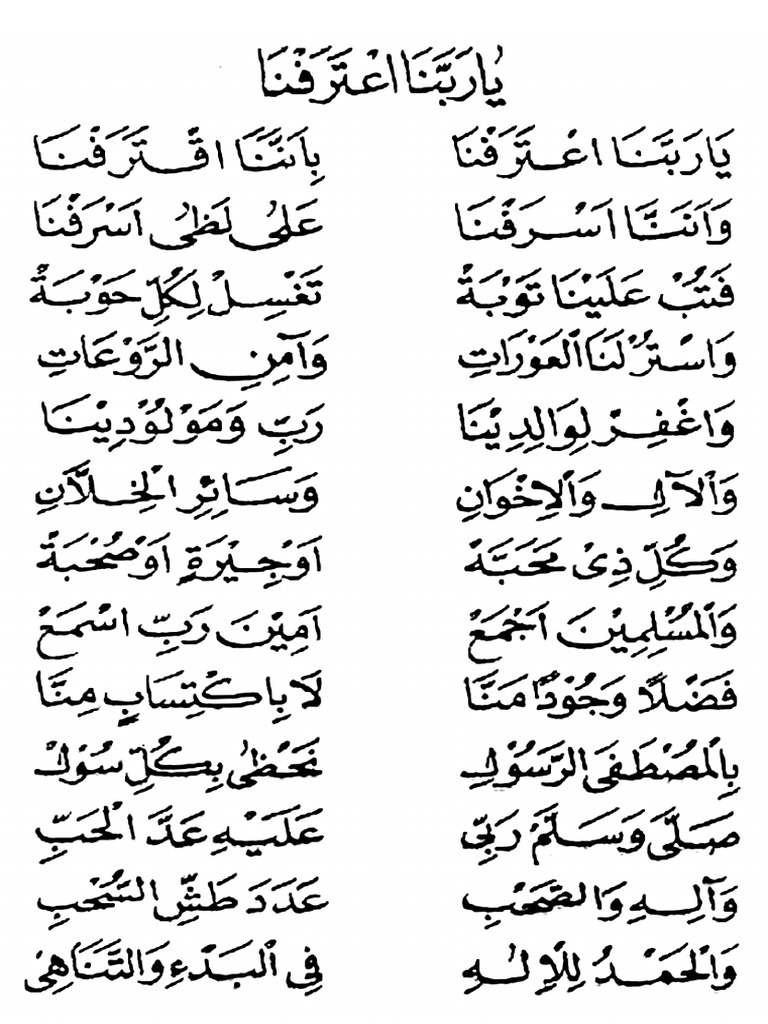 يٰارَبَّنَا اعْتَرَفْنَا
يَارَبَّنَا اعْتَرَفْنَا بِاَنَّنَا اقْتَرَفْنَا
وَاَنَّنَا اَسْرَفْنَا عَلىٰ لَظٰى اَسْرَفْنَا
فَتُبْ عَلَيْنَا تَوْبَةْ تَغْسِلْ لِكُلِّ حَوْبَةْ
وَاسْتُرْ لَنَا الْعَوْرَاتِ وَآمِنِ الرَّوْعَاتِ
وَاغْفِرْ لِوَالِدِيْنَا رَبِّ وَمَوْلُوْدِيْنَا
وَالْآلِ وَالْاِخْوَانِ وَسَائِرِ الْخِلَّانِ
وَكُلِّ ذِىْ مَحَبَّهْ اَوْجِيْرَةٍ اَوْصُحْبَةْ
وَالْمُسْلِمِيْنَ اَجْمَعْ اَمِيْنَ رَبِّ اسْمَعْ
فَضْلًا وَجُوْدًا مَنَّا لَا بِاكْتِسَابٍ مِنَّا
بِالْمُصْطَفَى الرَّسُوْلِ نَحْظٰى بِكُلِّ سُوْلْ
صَلَّى وَسَلَّمْ رَبِّى عَلَيْهِ عَدَّ الْحَبِّ
وَآلِهِ وَالصَّحْبِ عَدَدَ طَشِّ السُّحْبِ
وَالْحَمْدُ لِلْاِلٰهِ فِي الْبَدْءِ وَالتَّنَاهِىْ